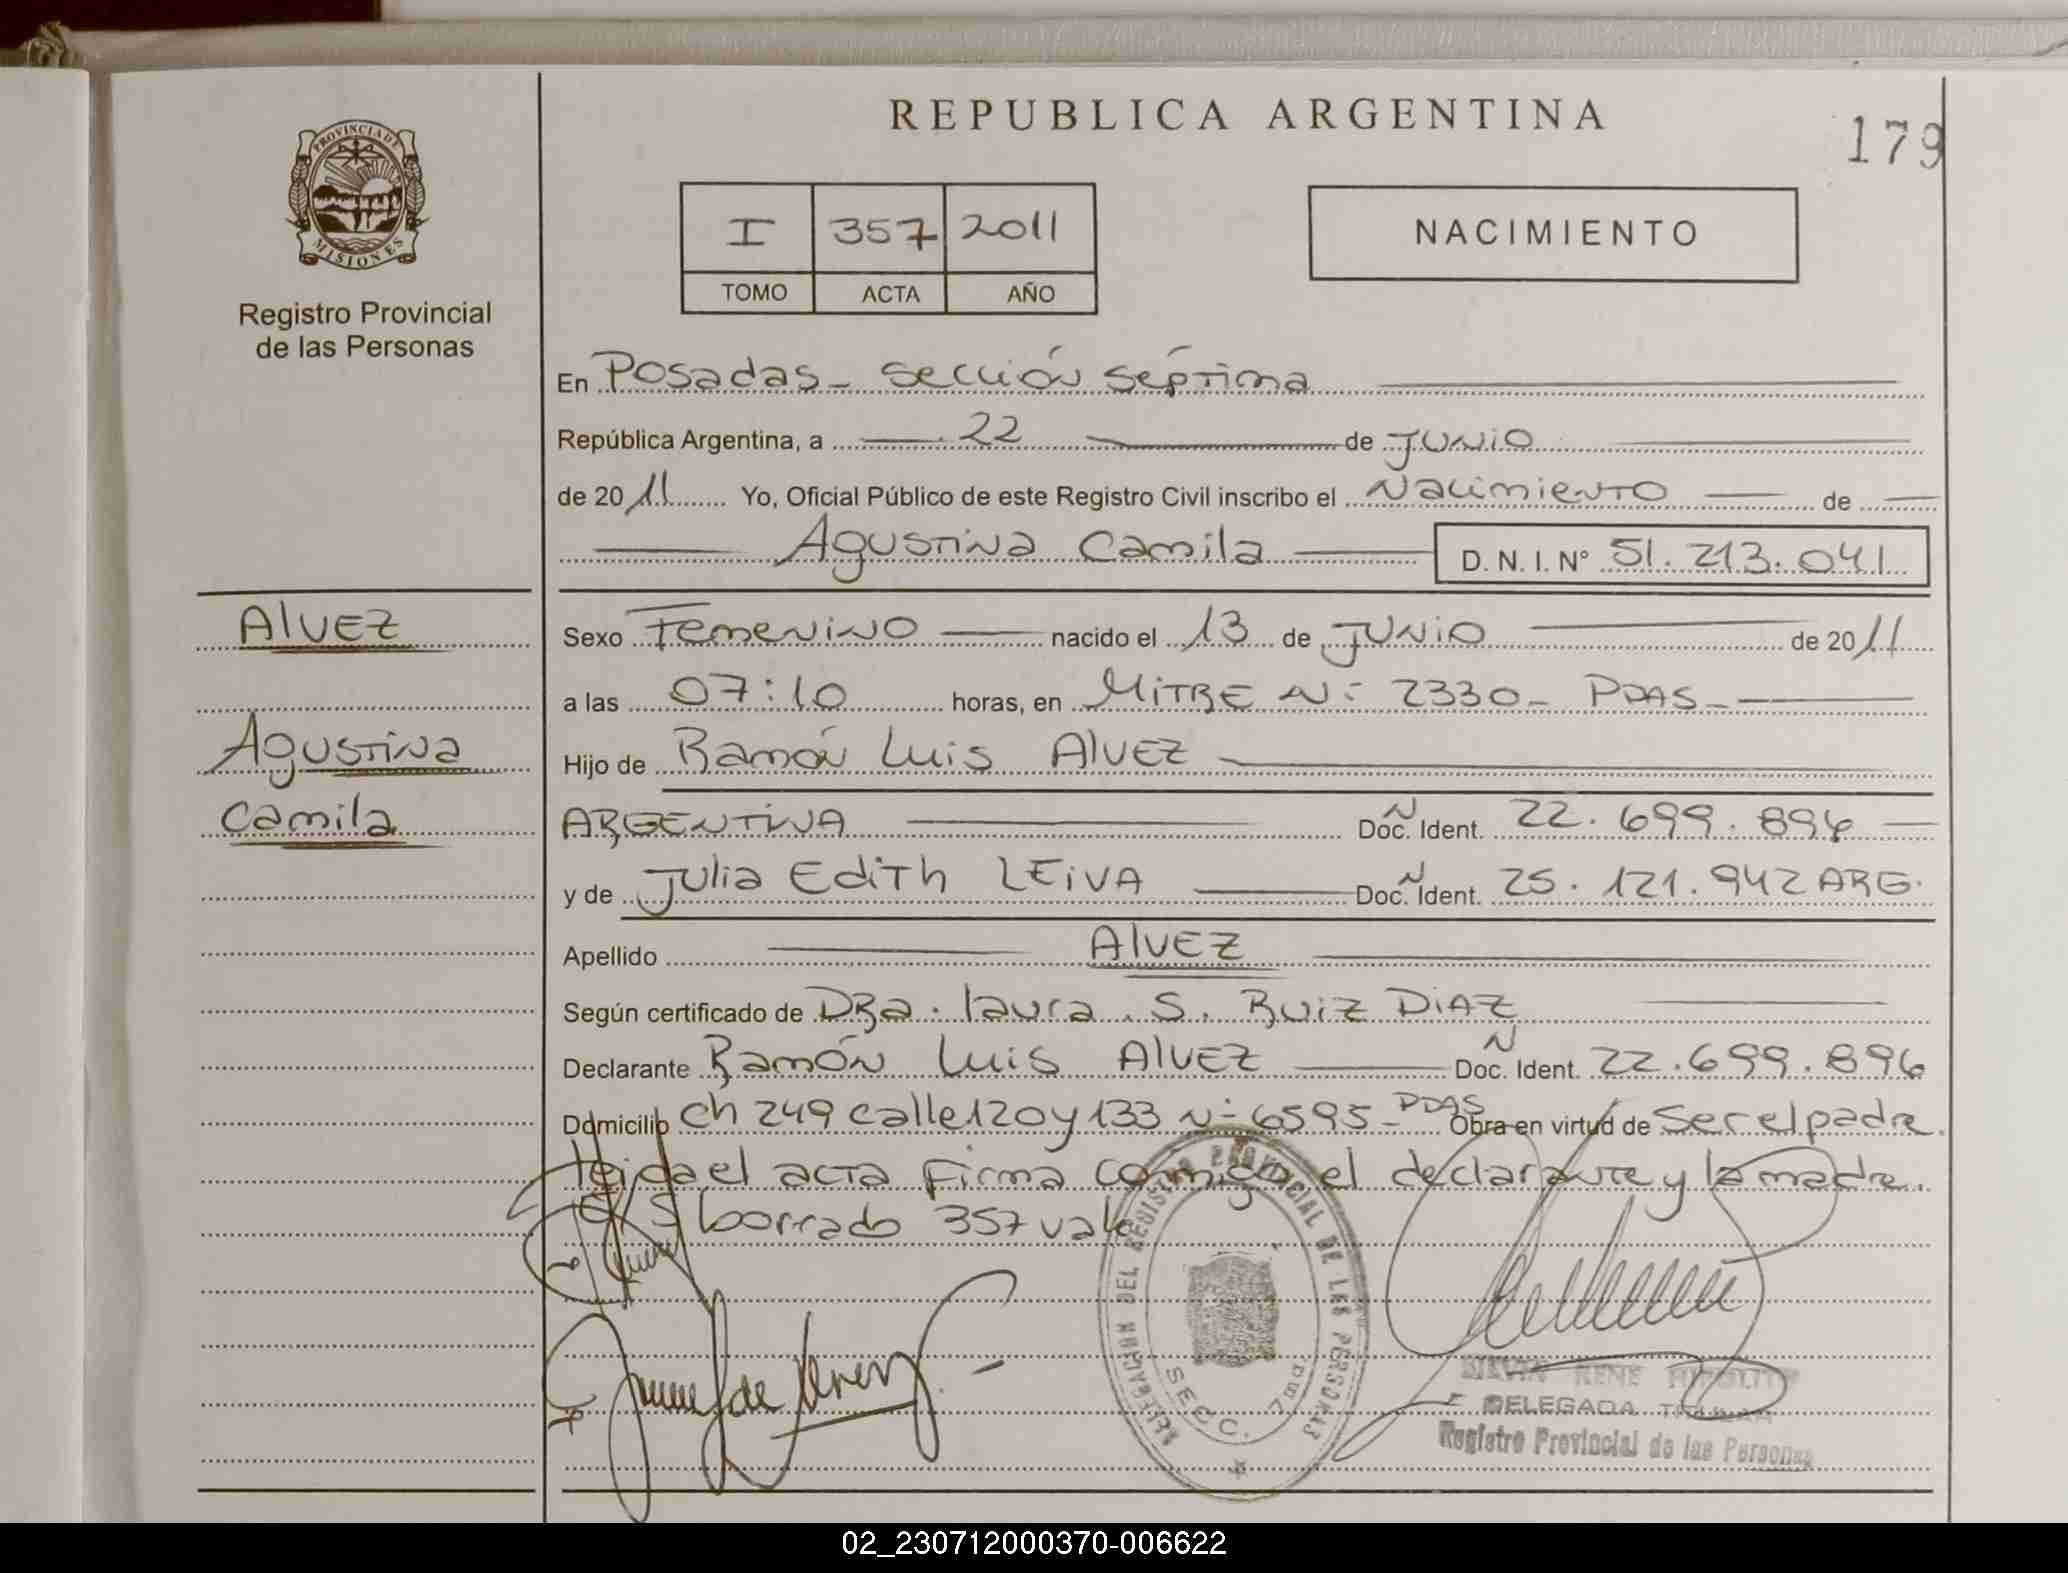 REPUBLICA ARGENTINA
179
PROVINCIA DE
MISIONES
Registro Provincial
de las Personas
I 357 2011
TOMO ACTA AÑO
NACIMIENTO
En Posadas - sección séptima
República Argentina, a 22 de Junio
de 2011 Yo, Oficial Público de este Registro Civil inscribo el Nacimiento de
Agustina Camila D. N. I. N° 51.213.041
Alvez
Agustina
Camila
Sexo Femenino nacido el 13 de Junio de 2011
a las 07:10 horas, en Mitre N: 2330 - Pdas -
Hijo de Ramón Luis Alvez
Argentina Doc. N Ident. 22.699.896
y de Julia Edith Leiva Doc. N Ident. 25.121.942 ARG.
Apellido Alvez
Según certificado de Dra. Laura. S. Ruiz Diaz
Declarante Ramón Luis Alvez Doc. N Ident. 22.699.896
Domicilio Ch 249 calle 120 y 133 N: 6595 - Pdas Obra en virtud de ser el padre.
leida el acta firma conmigo el declarante y la madre.
S/ borrado 357 vale
DELEGACION DEL REGISTRO PROVINCIAL DE LAS PERSONAS
SECC. 7ma
RENE HIPOLITO
DELEGADA TITULAR
Registro Provincial de las Personas
02_230712000370-006622